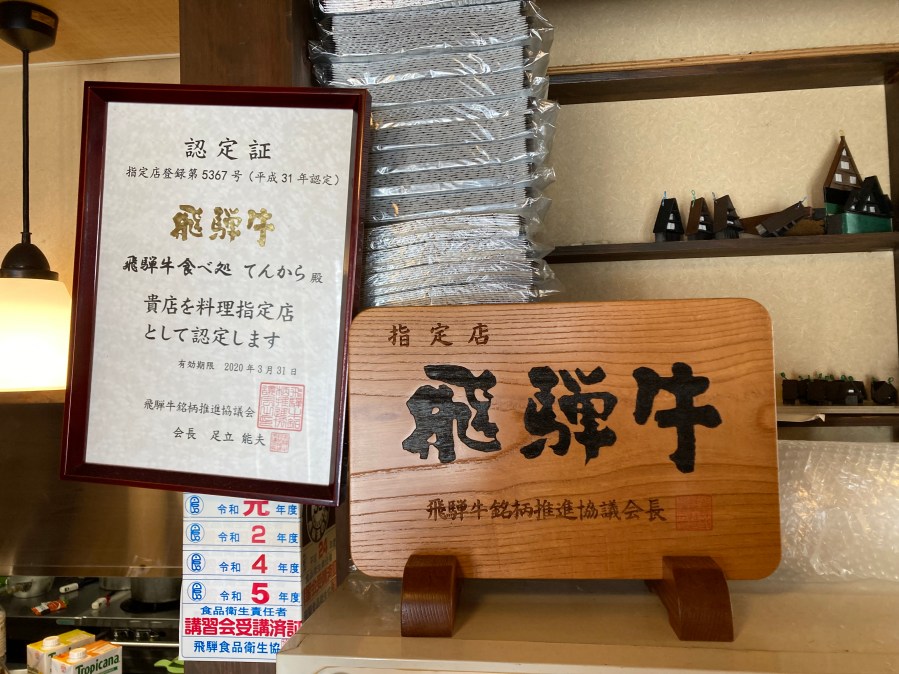 認定証
指定店登録第5367号(平成31年認定)
飛騨牛
飛騨牛食べ処 てんから 殿
貴店を料理指定店
として認定します
有効期限 2020年3月31日
飛騨牛銘柄推進協議会
会長 足立 能夫
指定店
飛騨牛
飛騨牛銘柄推進協議会長
令和 元 年度
令和 2 年度
令和 4 年度
令和 5 年度
食品衛生責任者
講習会受講済証
飛騨食品衛生協
Tropicana